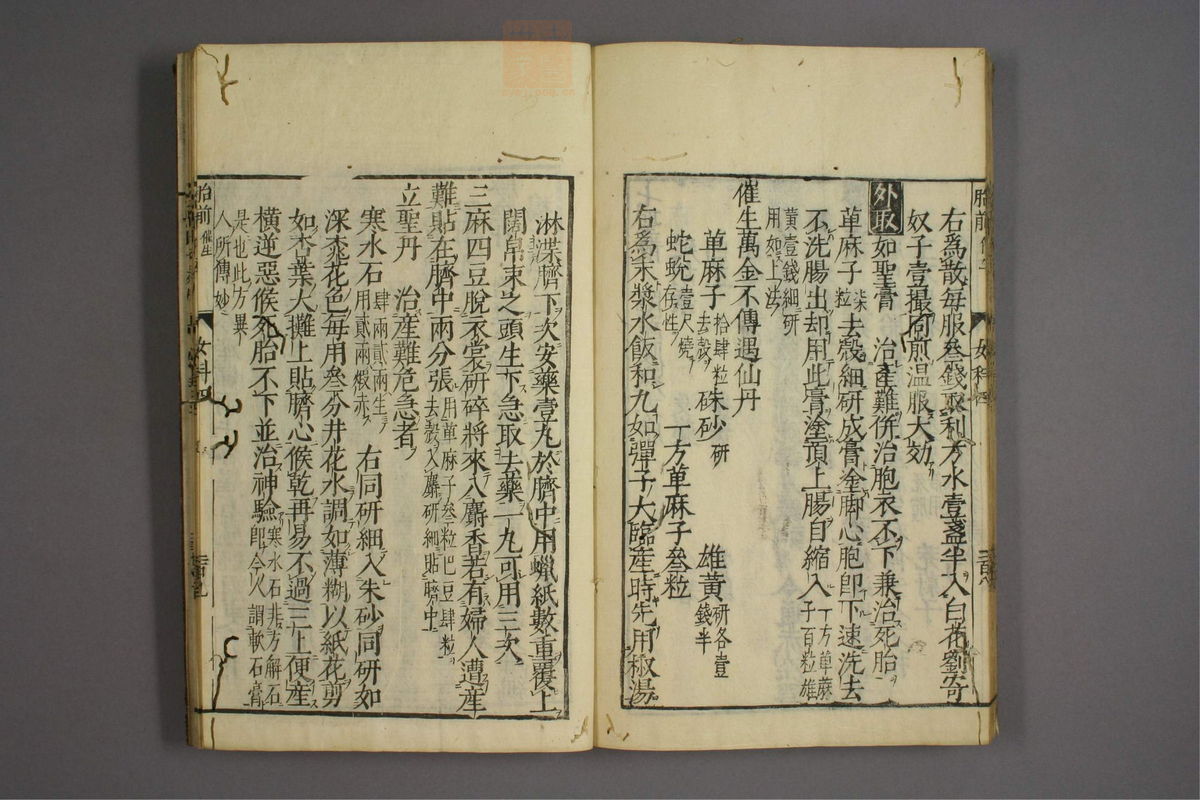 右爲散每服叄錢取利方水壹盞半入白花劉寄
奴子壹撮同煎温服大効
外取 如聖膏 治產難併治胞衣不下兼治死胎
萆麻子柒粒 去殼細研成膏塗脚心胞即下速洗去
不洗腸出却用此膏塗頂上腸自縮入 一方萆麻子百粒雄
黄壹錢細研用如上法
催生萬金不傳遇仙丹
萆麻子拾肆粒去殼 硃砂研 雄黄研各壹錢半
蛇蛻壹尺燒存性 一方萆麻子叄粒
右爲末漿水飯和丸如彈子大臨産時先用椒湯
淋渫臍下次安藥壹丸於臍中用蠟紙數重覆上
闊帛束之頭生下急取去藥一丸可用三次
三麻四豆脫衣裳研碎將來入麝香若有婦人遭産
難貼在臍中兩分張 用萆麻子叄粒巴豆肆粒去殼入麝研細貼臍中
立聖丹 治産難危急者
寒水石肆兩貳兩生用貳兩煆赤 右同研細入朱砂同研如
深桃花色每用叄分井花水調如薄糊以紙花剪
如杏葉大攤上貼臍心候乾再易不過三上便産
橫逆惡候死胎不下並治神驗 寒水石非方解石即今人謂軟石膏
是也此方異人所傳妙
胎前 催生
女科四
胎前
女科